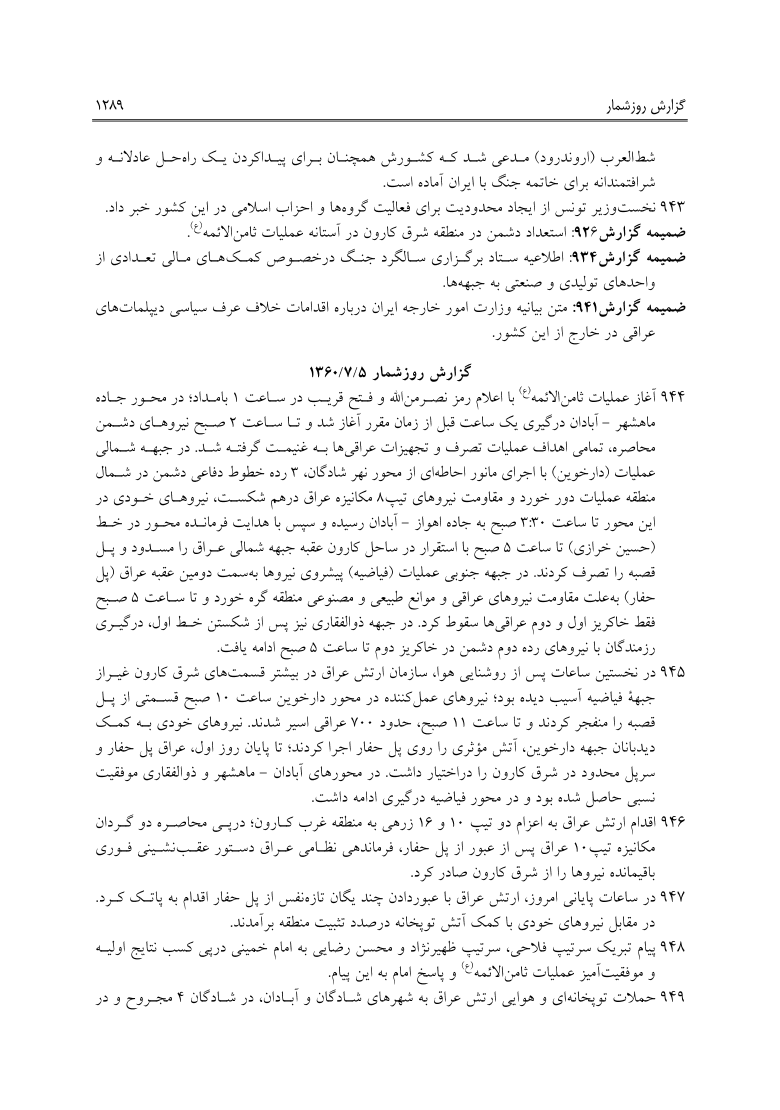 گزارش روزشمار ۱۲۸۹
شط‌العرب (اروندرود) مدعی شد که کشورش همچنان برای پیداکردن یک راه‌حل عادلانه و
شرافتمندانه برای خاتمه جنگ با ایران آماده است.
۹۴۳ نخست‌وزیر تونس از ایجاد محدودیت برای فعالیت گروه‌ها و احزاب اسلامی در این کشور خبر داد.
ضمیمه گزارش۹۲۶: استعداد دشمن در منطقه شرق کارون در آستانه عملیات ثامن‌الائمه(ع).
ضمیمه گزارش۹۳۴: اطلاعیه ستاد برگزاری سالگرد جنگ درخصوص کمک‌های مالی تعدادی از
واحدهای تولیدی و صنعتی به جبهه‌ها.
ضمیمه گزارش۹۴۱: متن بیانیه وزارت امور خارجه ایران درباره اقدامات خلاف عرف سیاسی دیپلمات‌های
عراقی در خارج از این کشور.
گزارش روزشمار ۱۳۶۰/۷/۵
۹۴۴ آغاز عملیات ثامن‌الائمه(ع) با اعلام رمز نصرمن‌الله و فتح قریب در ساعت ۱ بامداد؛ در محور جاده
ماهشهر – آبادان درگیری یک ساعت قبل از زمان مقرر آغاز شد و تا ساعت ۲ صبح نیروهای دشمن
محاصره، تمامی اهداف عملیات تصرف و تجهیزات عراقی‌ها به غنیمت گرفته شد. در جبهه شمالی
عملیات (دارخوین) با اجرای مانور احاطه‌ای از محور نهر شادگان، ۳ رده خطوط دفاعی دشمن در شمال
منطقه عملیات دور خورد و مقاومت نیروهای تیپ۸ مکانیزه عراق درهم شکست، نیروهای خودی در
این محور تا ساعت ۳:۳۰ صبح به جاده اهواز – آبادان رسیده و سپس با هدایت فرمانده محور در خط
(حسین خرازی) تا ساعت ۵ صبح با استقرار در ساحل کارون عقبه جبهه شمالی عراق را مسدود و پل
قصبه را تصرف کردند. در جبهه جنوبی عملیات (فیاضیه) پیشروی نیروها به‌سمت دومین عقبه عراق (پل
حفار) به‌علت مقاومت نیروهای عراقی و موانع طبیعی و مصنوعی منطقه گره خورد و تا ساعت ۵ صبح
فقط خاکریز اول و دوم عراقی‌ها سقوط کرد. در جبهه ذوالفقاری نیز پس از شکستن خط اول، درگیری
رزمندگان با نیروهای رده دوم دشمن در خاکریز دوم تا ساعت ۵ صبح ادامه یافت.
۹۴۵ در نخستین ساعات پس از روشنایی هوا، سازمان ارتش عراق در بیشتر قسمت‌های شرق کارون غیراز
جبههٔ فیاضیه آسیب دیده بود؛ نیروهای عمل‌کننده در محور دارخوین ساعت ۱۰ صبح قسمتی از پل
قصبه را منفجر کردند و تا ساعت ۱۱ صبح، حدود ۷۰۰ عراقی اسیر شدند. نیروهای خودی به کمک
دیدبانان جبهه دارخوین، آتش مؤثری را روی پل حفار اجرا کردند؛ تا پایان روز اول، عراق پل حفار و
سرپل محدود در شرق کارون را دراختیار داشت. در محورهای آبادان – ماهشهر و ذوالفقاری موفقیت
نسبی حاصل شده بود و در محور فیاضیه درگیری ادامه داشت.
۹۴۶ اقدام ارتش عراق به اعزام دو تیپ ۱۰ و ۱۶ زرهی به منطقه غرب کارون؛ درپی محاصره دو گردان
مکانیزه تیپ۱۰ عراق پس از عبور از پل حفار، فرماندهی نظامی عراق دستور عقب‌نشینی فوری
باقیمانده نیروها را از شرق کارون صادر کرد.
۹۴۷ در ساعات پایانی امروز، ارتش عراق با عبوردادن چند یگان تازه‌نفس از پل حفار اقدام به پاتک کرد.
در مقابل نیروهای خودی با کمک آتش توپخانه درصدد تثبیت منطقه برآمدند.
۹۴۸ پیام تبریک سرتیپ فلاحی، سرتیپ ظهیرنژاد و محسن رضایی به امام خمینی درپی کسب نتایج اولیه
و موفقیت‌آمیز عملیات ثامن‌الائمه(ع) و پاسخ امام به این پیام.
۹۴۹ حملات توپخانه‌ای و هوایی ارتش عراق به شهرهای شادگان و آبادان، در شادگان ۴ مجروح و در